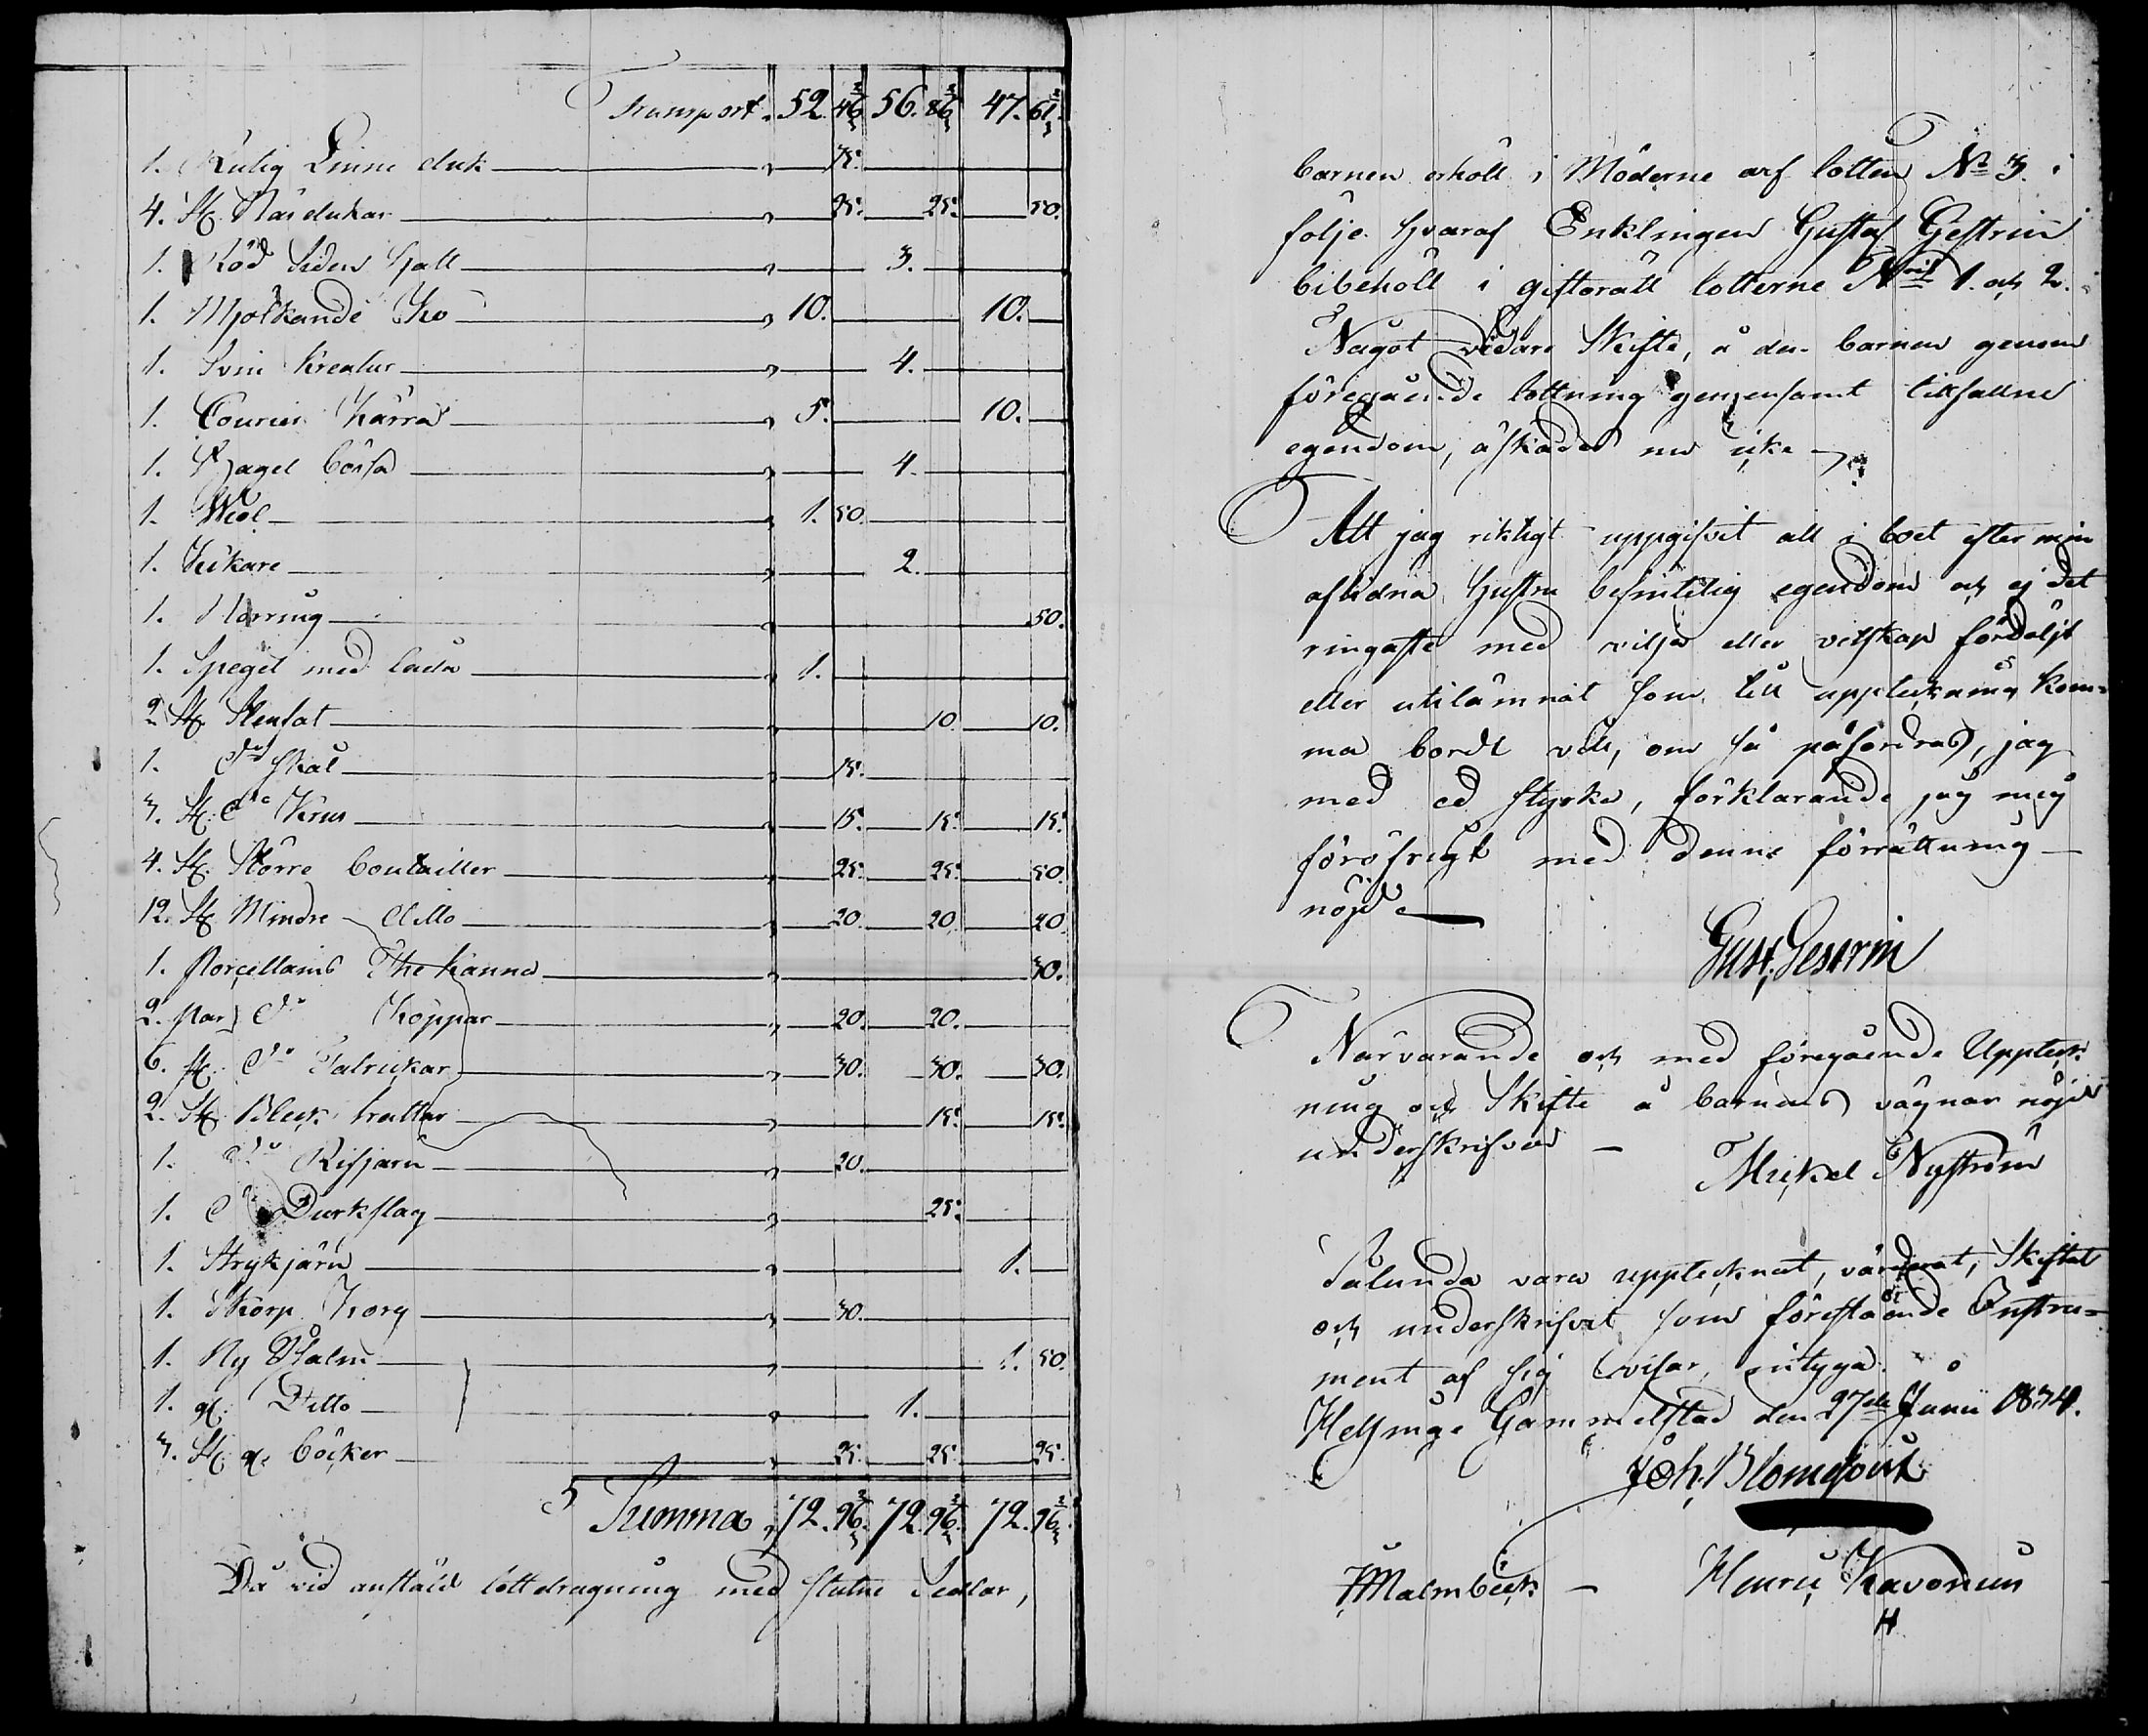 Transport. 52. 46 2/3 56. 86 2/3 47. 61 2/3
1. Rutig Linne duk 75.
4. St. Näsdukar 25. 25. 50.
1. Röd Siden Hatt 3.
1. Mjölkande Ko 10. 10.
1. Svin kreatur 4.
1. Courier Kärra 5. 10.
1. Hagel bössa 4.
1. Wiol 1. 50.
1. Kikare 2.
1. 50.
1. Spegel med låda 1.
2 St. Stenfat 10. 10.
1. do skål 15.
3. St. do Krus 15. 15. 15.
4. St. Större bouteiller 25. 25. 50.
12. St. Mindre ditto 20. 20. 40.
1. Porcellains The kanna 30.
2. par do Koppar 20. 20.
6. st. do Talrickar 30. 30. 30.
2. St. Bleck trattar 15. 15.
1. do Rifjarn 20.
1. do Durkslag 25.
1. Strykjärn 1.
1. Skorp Korg 30.
1. Ny Psalm 1. 50.
1. gl. Ditto 1.
3. St. gl. böcker 25. 25. 25.
Summa 72. 96 2/3 72. 96 2/3 72. 96 2/3
Då vid anstäld lottdragning med slutne Sedlar,
barnen erhöll i Möderne arf lotten No 3. i
följe hvaraf Enklingen Gustaf Gestrin
bibehöll i giftorätt lotterne N:ris 1. och 2.
Något vidare Skifte, å den barnen genom
föregående lottning gemensamt tillfallne
egendom, åskades nu icke
Att jag riktigt uppgifvit all i boet efter min
aflidna Hustru befintelig egendom och ej det
ringaste med vilja eller vetskap fördöljt
eller utelämnat som till uppteckning kom=
ma bordt vill, om så påfordras, jag
med ed styrka, förklarande jag mig
föröfrigt med denne förrättning
nöjd
Gust. Gestrin
Närvarande och med föregående Uppteck
ning och Skifte å barnens vägnar nöjd
underskrifver
Mickel Nyström
Sålunda vara upptecknat, värderat, Skiftat
och underskrifvet som förestående Instru=
ment af sig visar, intyga.
Helsinge Gammelstad den 27de Junii 1834.
Joh. Blomqvist
Malmbeck
Henric Kavonius